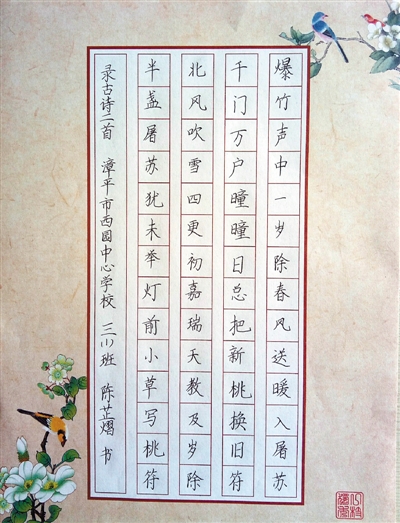 爆竹声中一岁除春风送暖入屠苏
千门万户瞳瞳日总把新桃换旧符
北风吹雪四更初嘉瑞天教及岁除
半盏屠苏犹未举灯前小草写桃符
录古诗二首 漳平市西园中心学校 三 班 陈芷熠 书